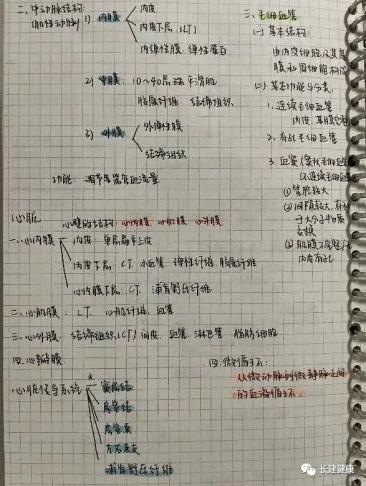 二、中动脉结构:
(肌性动脉)
1) 内膜
内皮
内皮下层 (CT)
内弹性膜: 弹性蛋白
2) 中膜: 10~40层环平滑肌
胶原纤维、结缔组织
3) 外膜
外弹性膜
结缔组织
功能: 调节器官血流量
心脏
心壁的结构: 心内膜、心肌膜、心外膜
一、心内膜
内皮 单层扁平上皮
内皮下层: CT. 小血管、弹性纤维、胶原纤维
心内膜下层: CT. 浦肯野氏纤维
二、心肌膜: CT. 心肌纤维、血管
三、心外膜: 结缔组织(CT) 间皮、血管、淋巴管、脂肪细胞
四、心瓣膜
心脏传导系统
窦房结
房室结
房室束
左右束支
浦肯野氏纤维
三、毛细血管
(一) 基本结构:
由内皮细胞及其基
膜和周细胞构成
(二) 基本功能与分类:
1. 连续毛细血管
内皮、基膜完整
2. 有孔毛细血管
3. 血窦(窦状毛细血管
(不连续毛细血管
① 管腔较大
② 间隙较大,有利
于大分子物质
交换
③ 基膜不完整/无
内有孔
四、微循环:
从微动脉到微静脉之间
的血液循环
长建健康